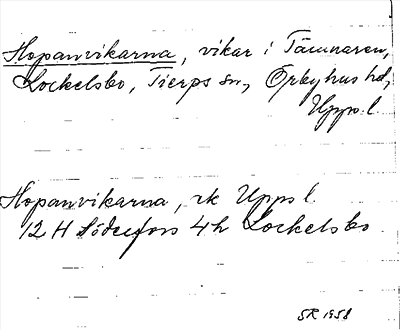 Hopanvikarna, vikar i Tämnaren,
Lockelsbo, Tierps sn, Örbyhus hd,
Upps. l.
Hopanvikarna, rk Upps l.
12 H Söderfors 4h Lockelsbo
SR 1958